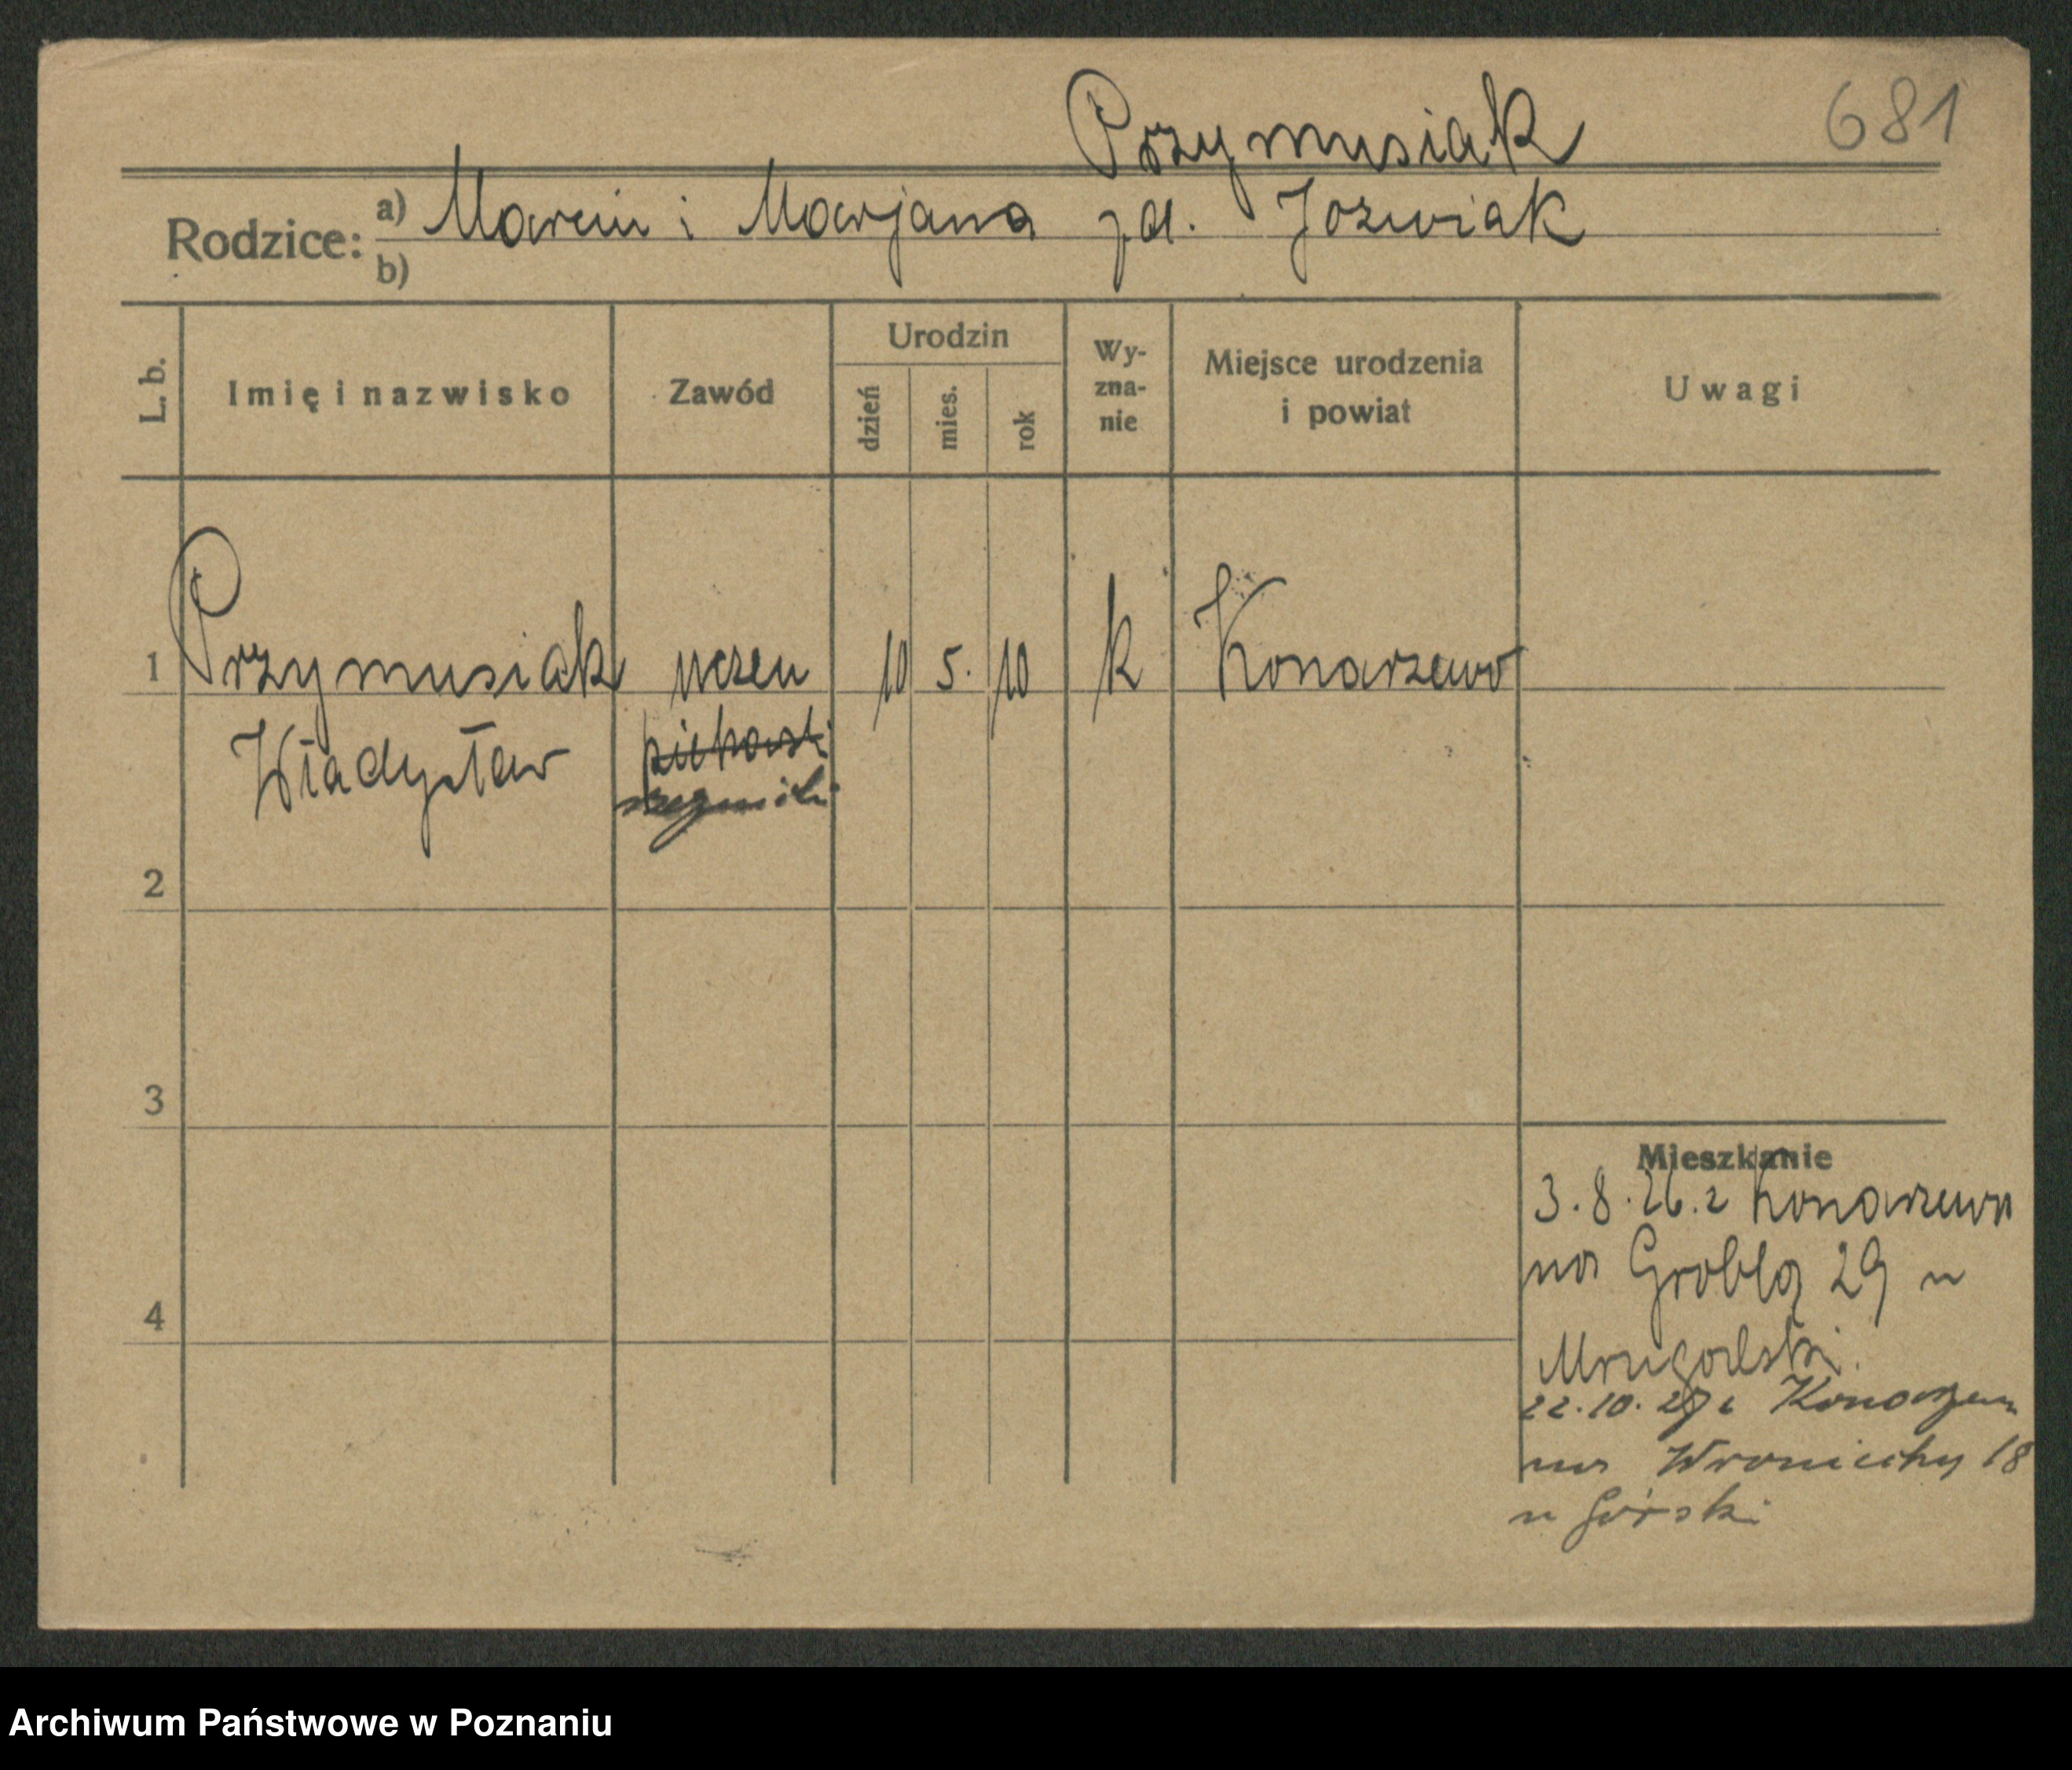 Przymusiak 681
Rodzice: a) Marcin i Marjana zd. Jozwiak
b)
L. b. Imię i nazwisko Zawód Urodzin dzień mies. rok Wy-zna-nie Miejsce urodzenia i powiat Uwagi
1 Przymusiak uczeń 10 5. 10 k Konarzewo
Władysław piekarski
2
3
Mieszkanie
3.8.26. z Konarzewa
na Grobla 29 u
4
Mrugalski.
22.10. z Konarzewa
na Wroniecky 18
u Górski
Archiwum Państwowe w Poznaniu